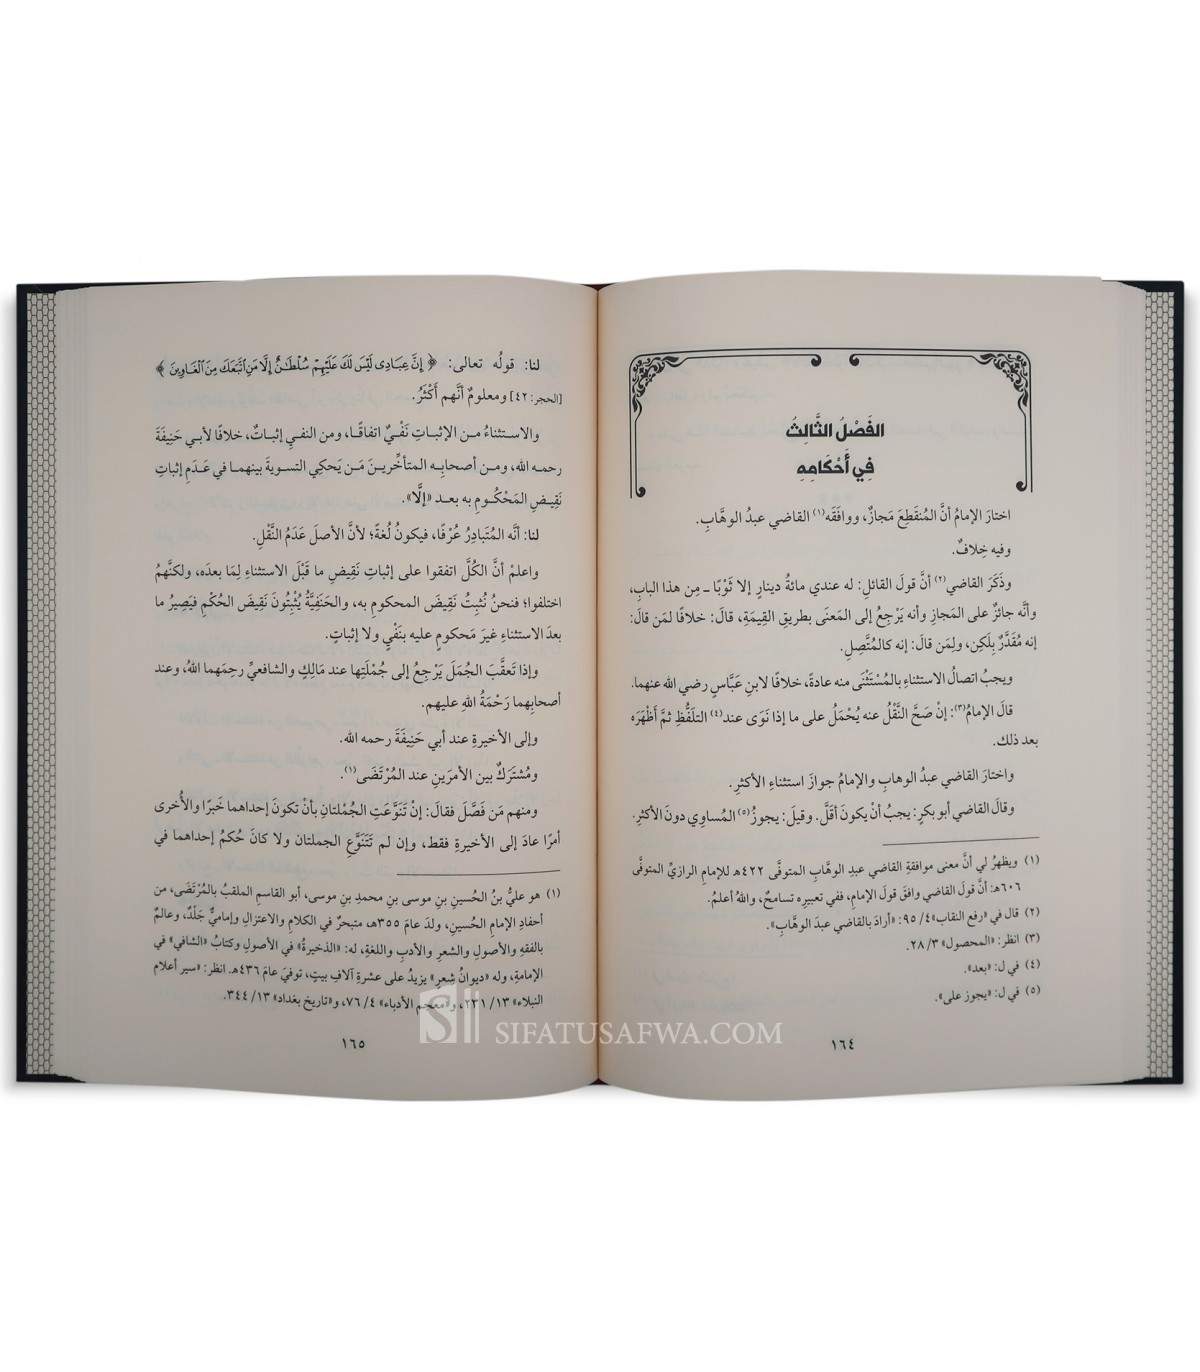 الفَصْلُ الثَّالِثُ
فِي أَحْكَامِهِ
اختارَ الإمامُ أنَّ المُنقَطِعَ مَجازٌ، ووافَقَه(١) القاضي عبدُ الوهَّابِ.
وفيه خِلافٌ.
وذَكَرَ القاضي(٢) أنَّ قولَ القائلِ: له عندي مائةُ دينارٍ إلا ثَوْبًا ـ مِن هذا البابِ،
وأنَّه جائزٌ على المَجازِ وأنه يَرْجِعُ إلى المَعنَى بطريقِ القِيمَةِ، قالَ: خلافًا لمَن قالَ:
إنه مُقَدَّرٌ بِلَكِن، ولِمَن قالَ: إنه كالمُتَّصِلِ.
ويجبُ اتصالُ الاستثناءِ بالمُسْتَثْنَى منه عادةً، خلافًا لابنِ عَبَّاسٍ رضي الله عنهما.
قالَ الإمامُ(٣): إنْ صَحَّ النَّقْلُ عنه يُحْمَلُ على ما إذا نَوَى عند(٤) التلفُّظِ ثمَّ أَظْهَرَه
بعد ذلك.
واختارَ القاضي عبدُ الوهابِ والإمامُ جوازَ استثناءِ الأكثرِ.
وقالَ القاضي أبو بكرٍ: يجبُ أنْ يكونَ أقلَّ. وقيلَ: يجوزُ(٥) المُساوِي دونَ الأكثرِ.
(١) ويظهرُ لي أنَّ معنى موافقةِ القاضي عبدِ الوهَّابِ المتوفَّى ٤٢٢هـ للإمامِ الرازيِّ المتوفَّى
٦٠٦هـ: أنَّ قولَ القاضي وافقَ قولَ الإمامِ، ففي تعبيرِه تسامحٌ، واللهُ أعلمُ.
(٢) قال في «رفع النقاب» ٤/ ٩٥: «أرادَ بالقاضي عبدَ الوهَّابِ».
(٣) انظر: «المحصول» ٣/ ٢٨.
(٤) في ل: «بعد».
(٥) في ل: «يجوز على».
١٦٤
لنا: قولُه تعالى: ﴿ إِنَّ عِبَادِى لَيْسَ لَكَ عَلَيْهِمْ سُلْطَٰنٌ إِلَّا مَنِ ٱتَّبَعَكَ مِنَ ٱلْغَاوِينَ ﴾
[الحجر: ٤٢] ومعلومٌ أنَّهم أَكْثَرُ.
والاستثناءُ من الإثباتِ نَفْيٌ اتفاقًا، ومن النفيِ إثباتٌ، خلافًا لأبي حَنِيفَةَ
رحمه الله، ومن أصحابِه المتأخِّرينَ مَن يَحكِي التسويةَ بينهما في عَدَمِ إثباتِ
نَقِيضِ المَحْكُومِ به بعد «إلَّا».
لنا: أنَّه المُتَبادِرُ عُرْفًا، فيكونُ لُغةً؛ لأنَّ الأصلَ عَدَمُ النَّقْلِ.
واعلمْ أنَّ الكُلَّ اتفقوا على إثباتِ نَقِيضِ ما قَبْلَ الاستثناءِ لِمَا بعدَه، ولكنَّهم
اختلفوا؛ فنحنُ نُثبِتُ نَقِيضَ المحكومِ به، والحَنَفِيَّةُ يُثْبِتُونَ نَقِيضَ الحُكْمِ فيَصِيرُ ما
بعدَ الاستثناءِ غيرَ مَحكومٍ عليه بنَفْيٍ ولا إثباتٍ.
وإذا تَعقَّبَ الجُمَلَ يَرْجِعُ إلى جُمْلَتِها عند مالِكٍ والشافعيِّ رحِمَهما اللهُ، وعند
أصحابِهما رَحْمَةُ اللهِ عليهم.
وإلى الأخيرةِ عند أبي حَنِيفَةَ رحمه الله.
ومُشتَرَكٌ بين الأمرَينِ عند المُرْتَضَى(١).
ومنهم مَن فَصَّلَ فقالَ: إنْ تَنَوَّعَتِ الجُمْلتانِ بأنْ تكونَ إحداهما خَبرًا والأُخرى
أمرًا عادَ إلى الأخيرةِ فقط، وإن لم تَتَنَوَّعِ الجملتان ولا كانَ حُكمُ إحداهما في
(١) هو عليُّ بنُ الحُسينِ بنِ موسى بنِ محمدِ بنِ موسى، أبو القاسمِ الملقبُ بالمُرْتَضَى، من
أحفادِ الإمامِ الحُسينِ، ولدَ عامَ ٣٥٥هـ، متبحرٌ في الكلامِ والاعتزالِ وإماميٌّ جَلْدٌ، وعالمٌ
بالفقهِ والأصولِ والشعرِ والأدبِ واللغةِ، له: «الذخيرةُ» في الأصولِ وكتابُ «الشافي» في
الإمامةِ، وله «ديوانُ شعرٍ» يزيدُ على عشرةِ آلافِ بيتٍ، توفيَ عامَ ٤٣٦هـ. انظر: «سير أعلام
النبلاء» ١٣/ ٢٣١، و«معجم الأدباء» ٤/ ٧٦، و«تاريخ بغداد» ١٣/ ٣٤٤.
١٦٥
SIFATUSAFWA.COM